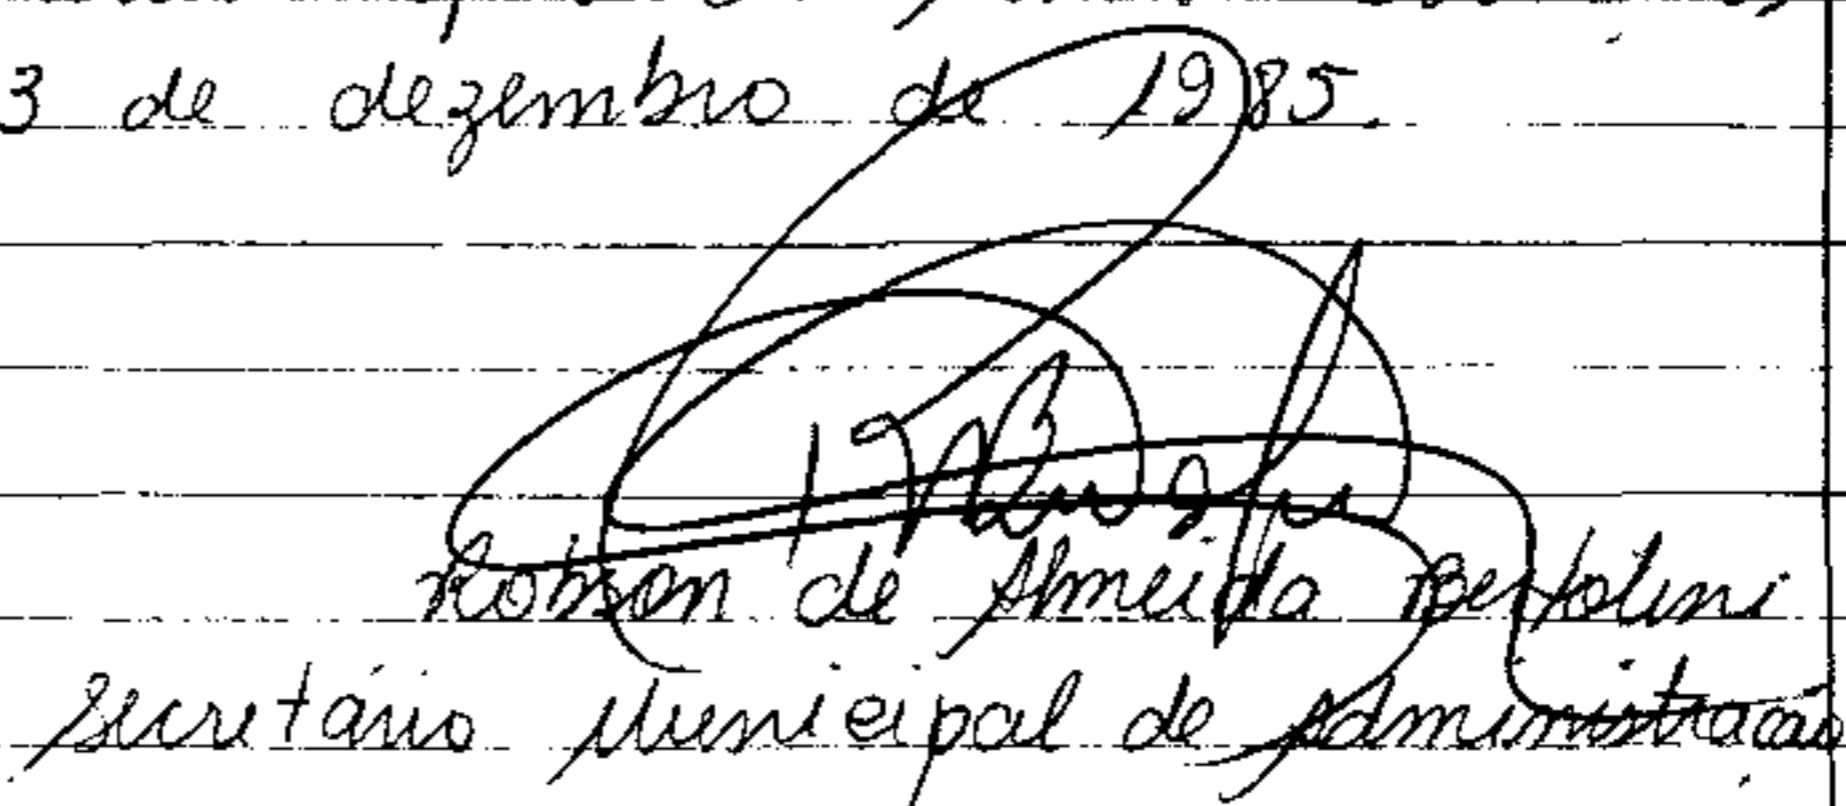 3 de dezembro de 1985.
Robson de Almeida Bertolini
Secretário Municipal de Administração